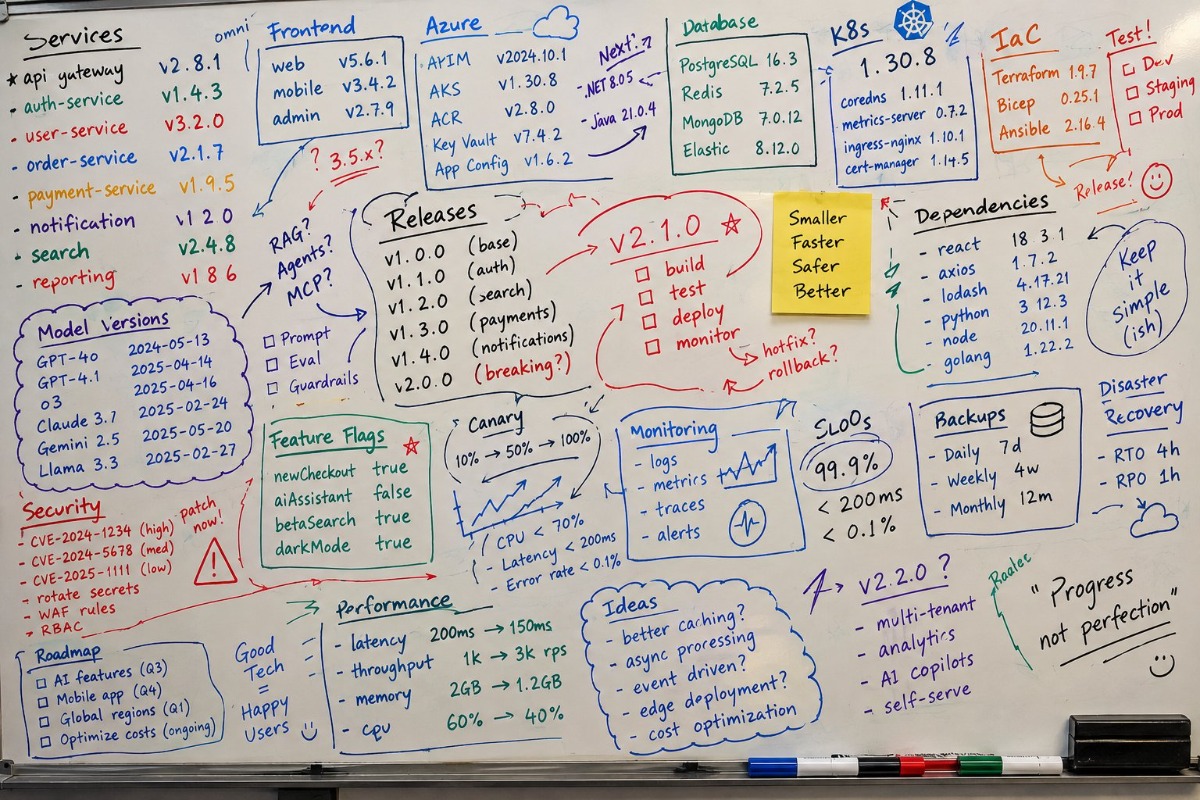 Services
★ api gateway v2.8.1
- auth-service v1.4.3
- user-service v3.2.0
- order-service v2.1.7
- payment-service v1.9.5
- notification v1 2 0
- search v2.4.8
- reporting v1 8 6
omni
Frontend
web v5.6.1
mobile v3.4.2
admin v2.7.9
? 3.5.x?
Azure
v2024.10.1
AKS v1.30.8
ACR v2.8.0
Key Vault v7.4.2
App Config v1.6.2
Next?
- .NET 8.05
- Java 21.0.4
Database
PostgreSQL 16.3
Redis 7.2.5
MongoDB 7.0.12
Elastic 8.12.0
K8s
1.30.8
coredns 1.11.1
metrics-server 0.7.2
ingress-nginx 1.10.1
cert-manager 1.14.5
IaC
Terraform 1.9.7
Bicep 0.25.1
Ansible 2.16.4
Test!
☐ Dev
☐ Staging
☐ Prod
Release!
RAG?
Agents?
MCP?
☐ Prompt
☐ Eval
☐ Guardrails
Releases
v1.0.0 (base)
v1.1.0 (auth)
v1.2.0 (search)
v1.3.0 (payments)
v1.4.0 (notifications)
v2.0.0 (breaking?)
v2.1.0 ☆
☐ build
☐ test
☐ deploy
☐ monitor
hotfix?
rollback?
Smaller
Faster
Safer
Better
Dependencies
- react 18 3 1
- axios 1.7.2
- lodash 4.17.21
- python 3 12.3
- node 20.11.1
- golang 1.22.2
Keep
it
simple
(ish)
Model Versions
GPT-4o 2024-05-13
GPT-4.1 2025-04-14
o3 2025-04-16
Claude 3.7 2025-02-24
Gemini 2.5 2025-05-20
Llama 3.3 2025-02-27
Feature Flags ☆
newCheckout true
aiAssistant false
betaSearch true
darkMode true
Canary
10% → 50% → 100%
CPU < 70%
- Latency < 200ms
- Error rate < 0.1%
Monitoring
- logs
- metrics
- traces
- alerts
SLoOs
99.9%
< 200ms
< 0.1%
Backups
- Daily 7d
- Weekly 4w
- Monthly 12m
Disaster
Recovery
- RTO 4h
- RPO 1h
Security
- CVE-2024-1234 (high)
- CVE-2024-5678 (med)
- CVE-2025-1111 (low)
- rotate secrets
- WAF rules
- RBAC
patch
now!
Roadmap
☐ AI features (Q3)
☐ Mobile app (Q4)
☐ Global regions (Q1)
☐ Optimize costs (ongoing)
Good
Tech
=
Happy
Users
Performance
- latency 200ms → 150ms
- throughput 1k → 3k rps
- memory 2GB → 1.2GB
- cpu 60% → 40%
Ideas
- better caching?
- async processing
- event driven?
- edge deployment?
- cost optimization
v2.2.0 ?
- multi-tenant
- analytics
- AI copilots
- self-serve
"Progress
not perfection"